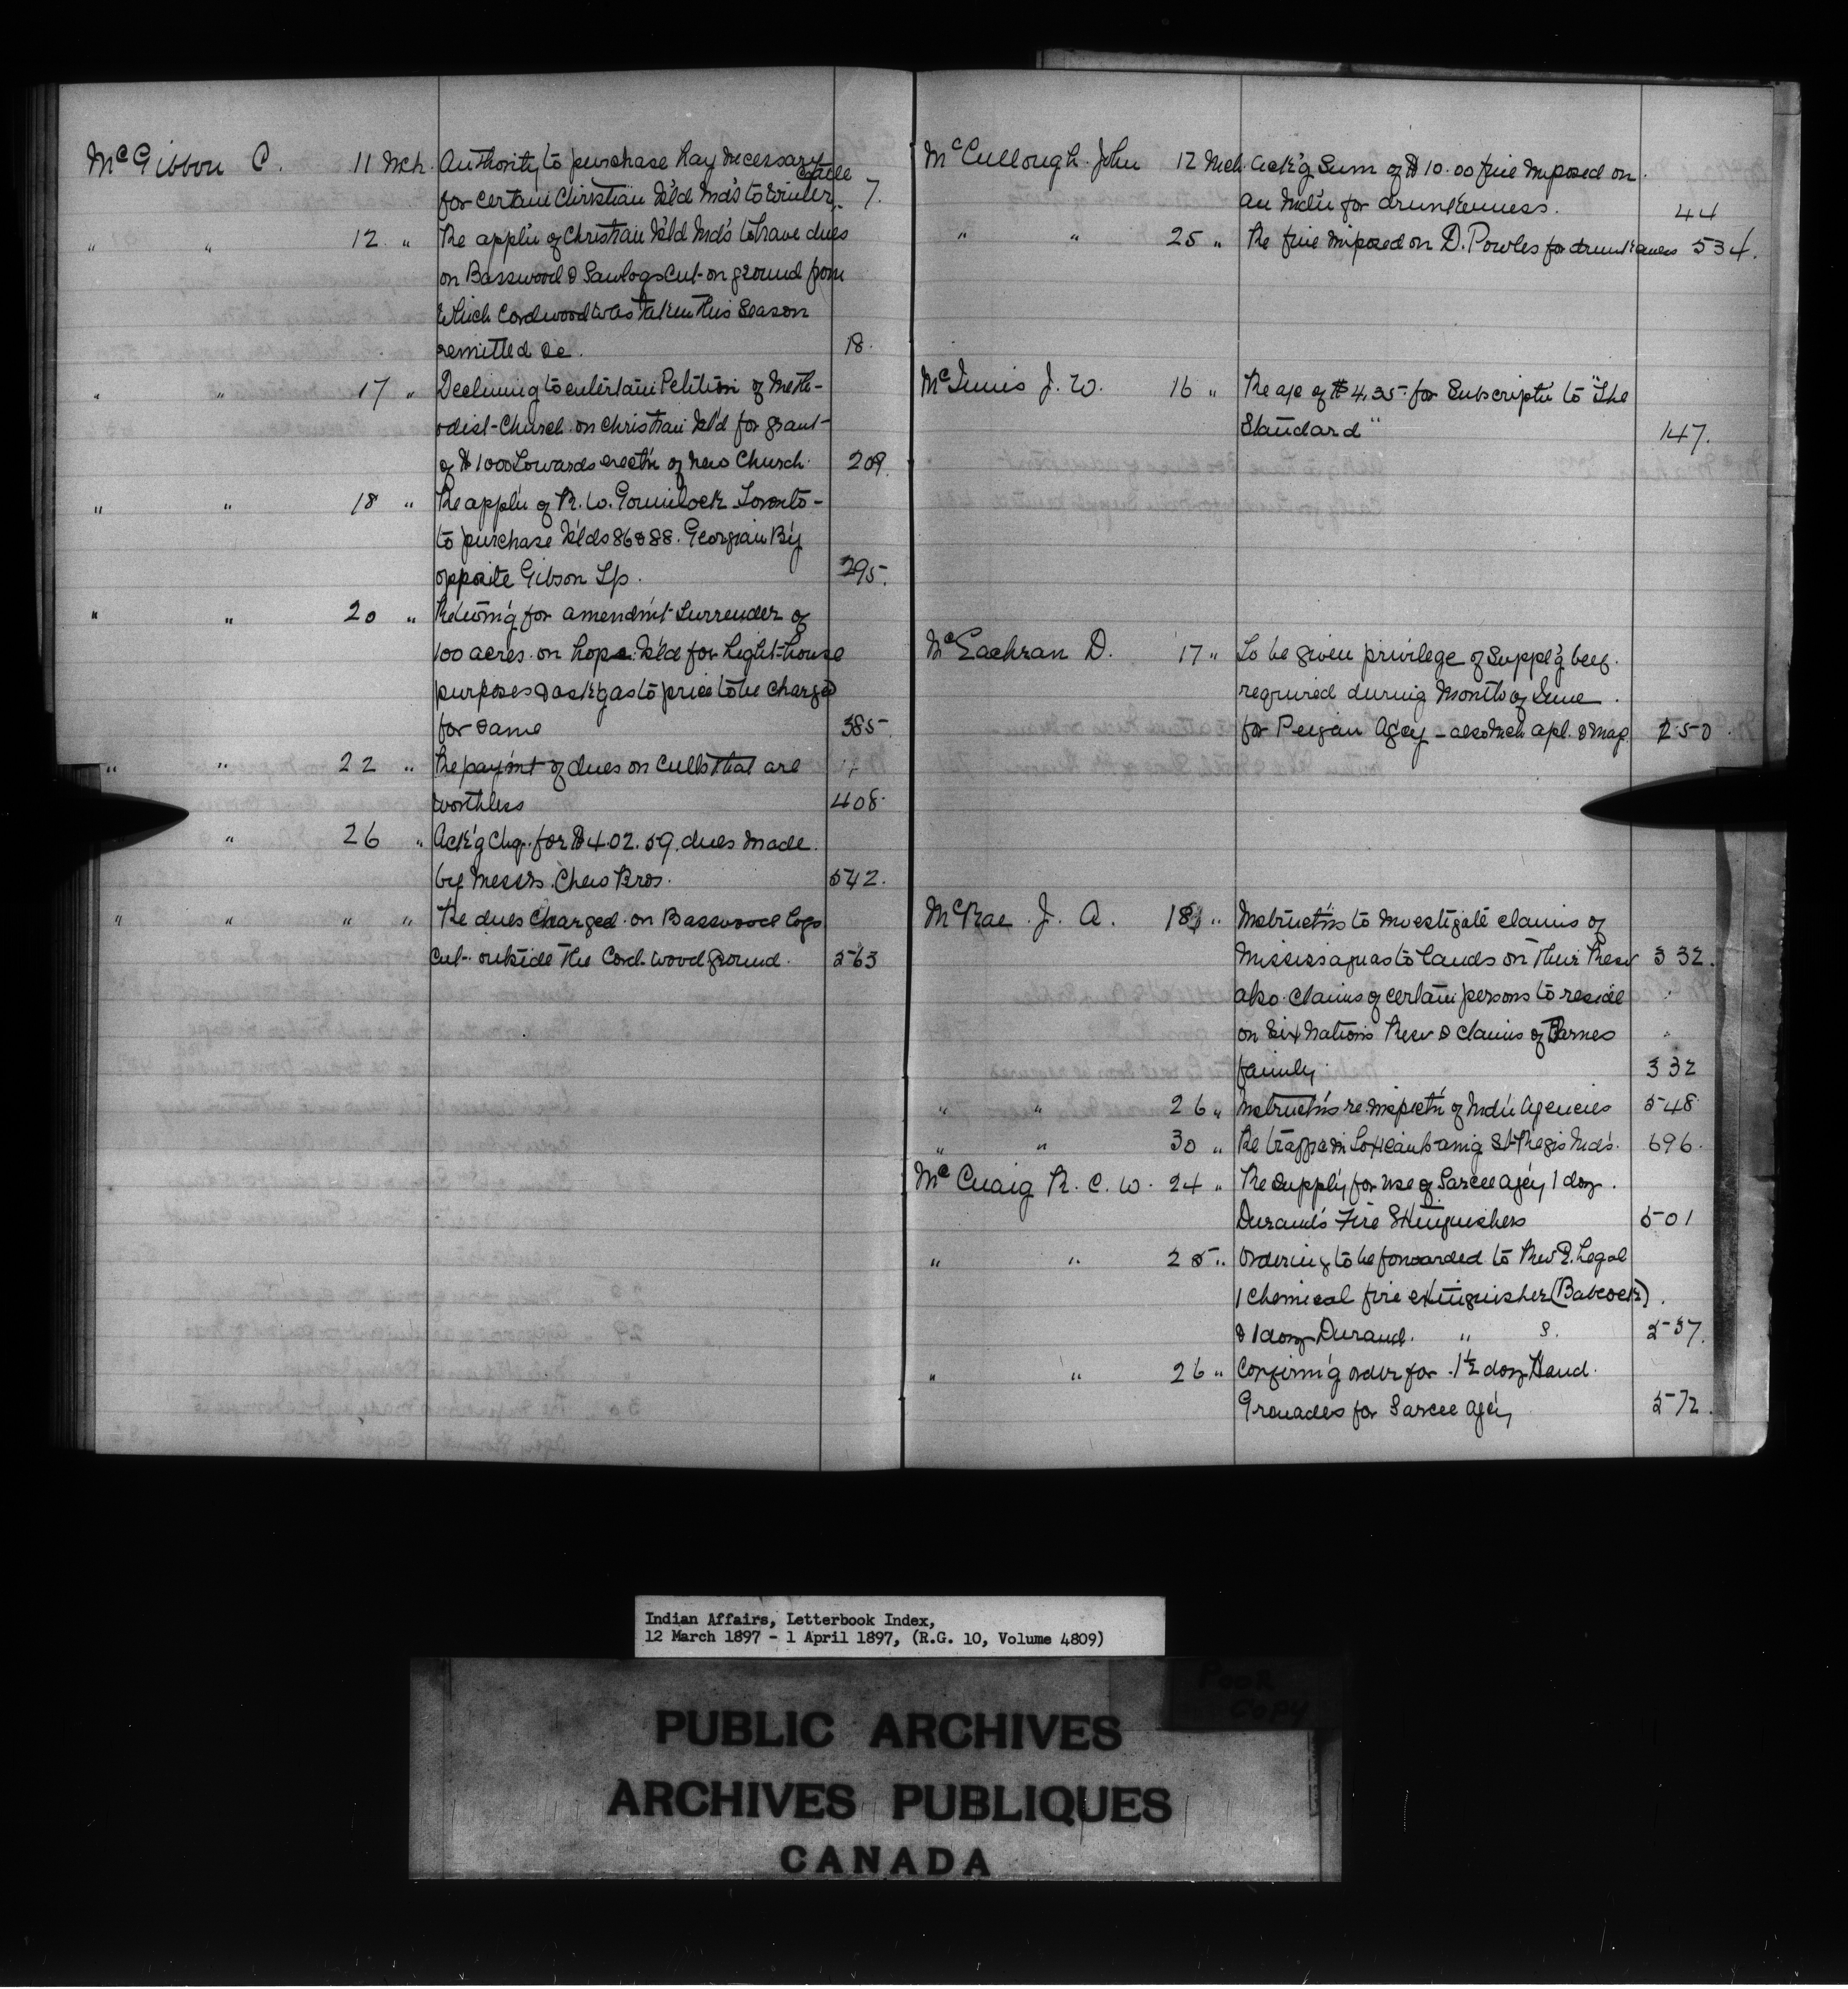 McGibbon C. 11 Mch. Authority to purchase hay necessary
cattle
for certain Christian Isl'd Ind's to winter. 7.
" " 12 " Re appl'n of Christian Isl'd Ind's to have dues
on Basswood & Sawlogs cut on ground from
which Cordwood was taken this Season
remitted &c. 18.
" " 17 " Declining to entertain Petition of Meth-
odist Church on Christian Isl'd for grant
of $1000 towards erect'n of new Church. 209
" " 18 " Re appl'n of R. W. Gowinlock Toronto
to purchase Isl'ds 86 & 88. Georgian B'y
opposite Gibson Tp. 295.
" " 20 " Return'g for amendm't surrender of
100 acres on Hope Isl'd for Light-house
purposes & ask'g as to price to be charged
for same 385
" " 22 " Re paym't of dues on culls that are
worthless 408.
" 26 " Ack'g Chq. for $402.59. dues made
by Messrs. Chew Bros. 542.
" " " " Re dues charged on Basswood logs
cut outside the Cord-wood ground. 563
McCullough John 12 Mch. Ack'g Sum of $10.00 fine imposed on
an Ind'n for drunkenness. 44
" " 25 " Re fine imposed on D. Powles for drunkenness 534.
McInnis J. W. 16 " Re a/c of $4.35 for Subscript'n to "The
Standard" 147.
McEachran D. 17 " To be given privilege of suppl'g beef
required during Month of June
for Peigan Ag'cy - also Mch apl. & May. 250.
McRae J. A. 18 " Instruct'ns to investigate claims of
Mississaguas to lands on their Resv 332.
also claims of certain persons to reside "
on Six Nations Resv & claims of Barnes "
family. 332
" " 26 " Instruct'ns re inspect'n of Ind'n Agencies 548
" " 30 " Re St. Regis Ind's. 696.
McCuaig R. C. W. 24 " Re supply for use of Sarcee ag'cy 1 doz.
Durand's Fire Extinguishers 501
" " 25 " Ordering to be forwarded to Rev E. Legal
1 Chemical fire extinguisher (Babcock)
& 1 doz Durand. " s. 537.
" " 26 " Confirm'g order for 1½ doz Hand
Grenades for Sarcee ag'cy 572.
Indian Affairs, Letterbook Index,
12 March 1897 - 1 April 1897, (R.G. 10, Volume 4809)
Poor
Copy
PUBLIC ARCHIVES
ARCHIVES PUBLIQUES
CANADA